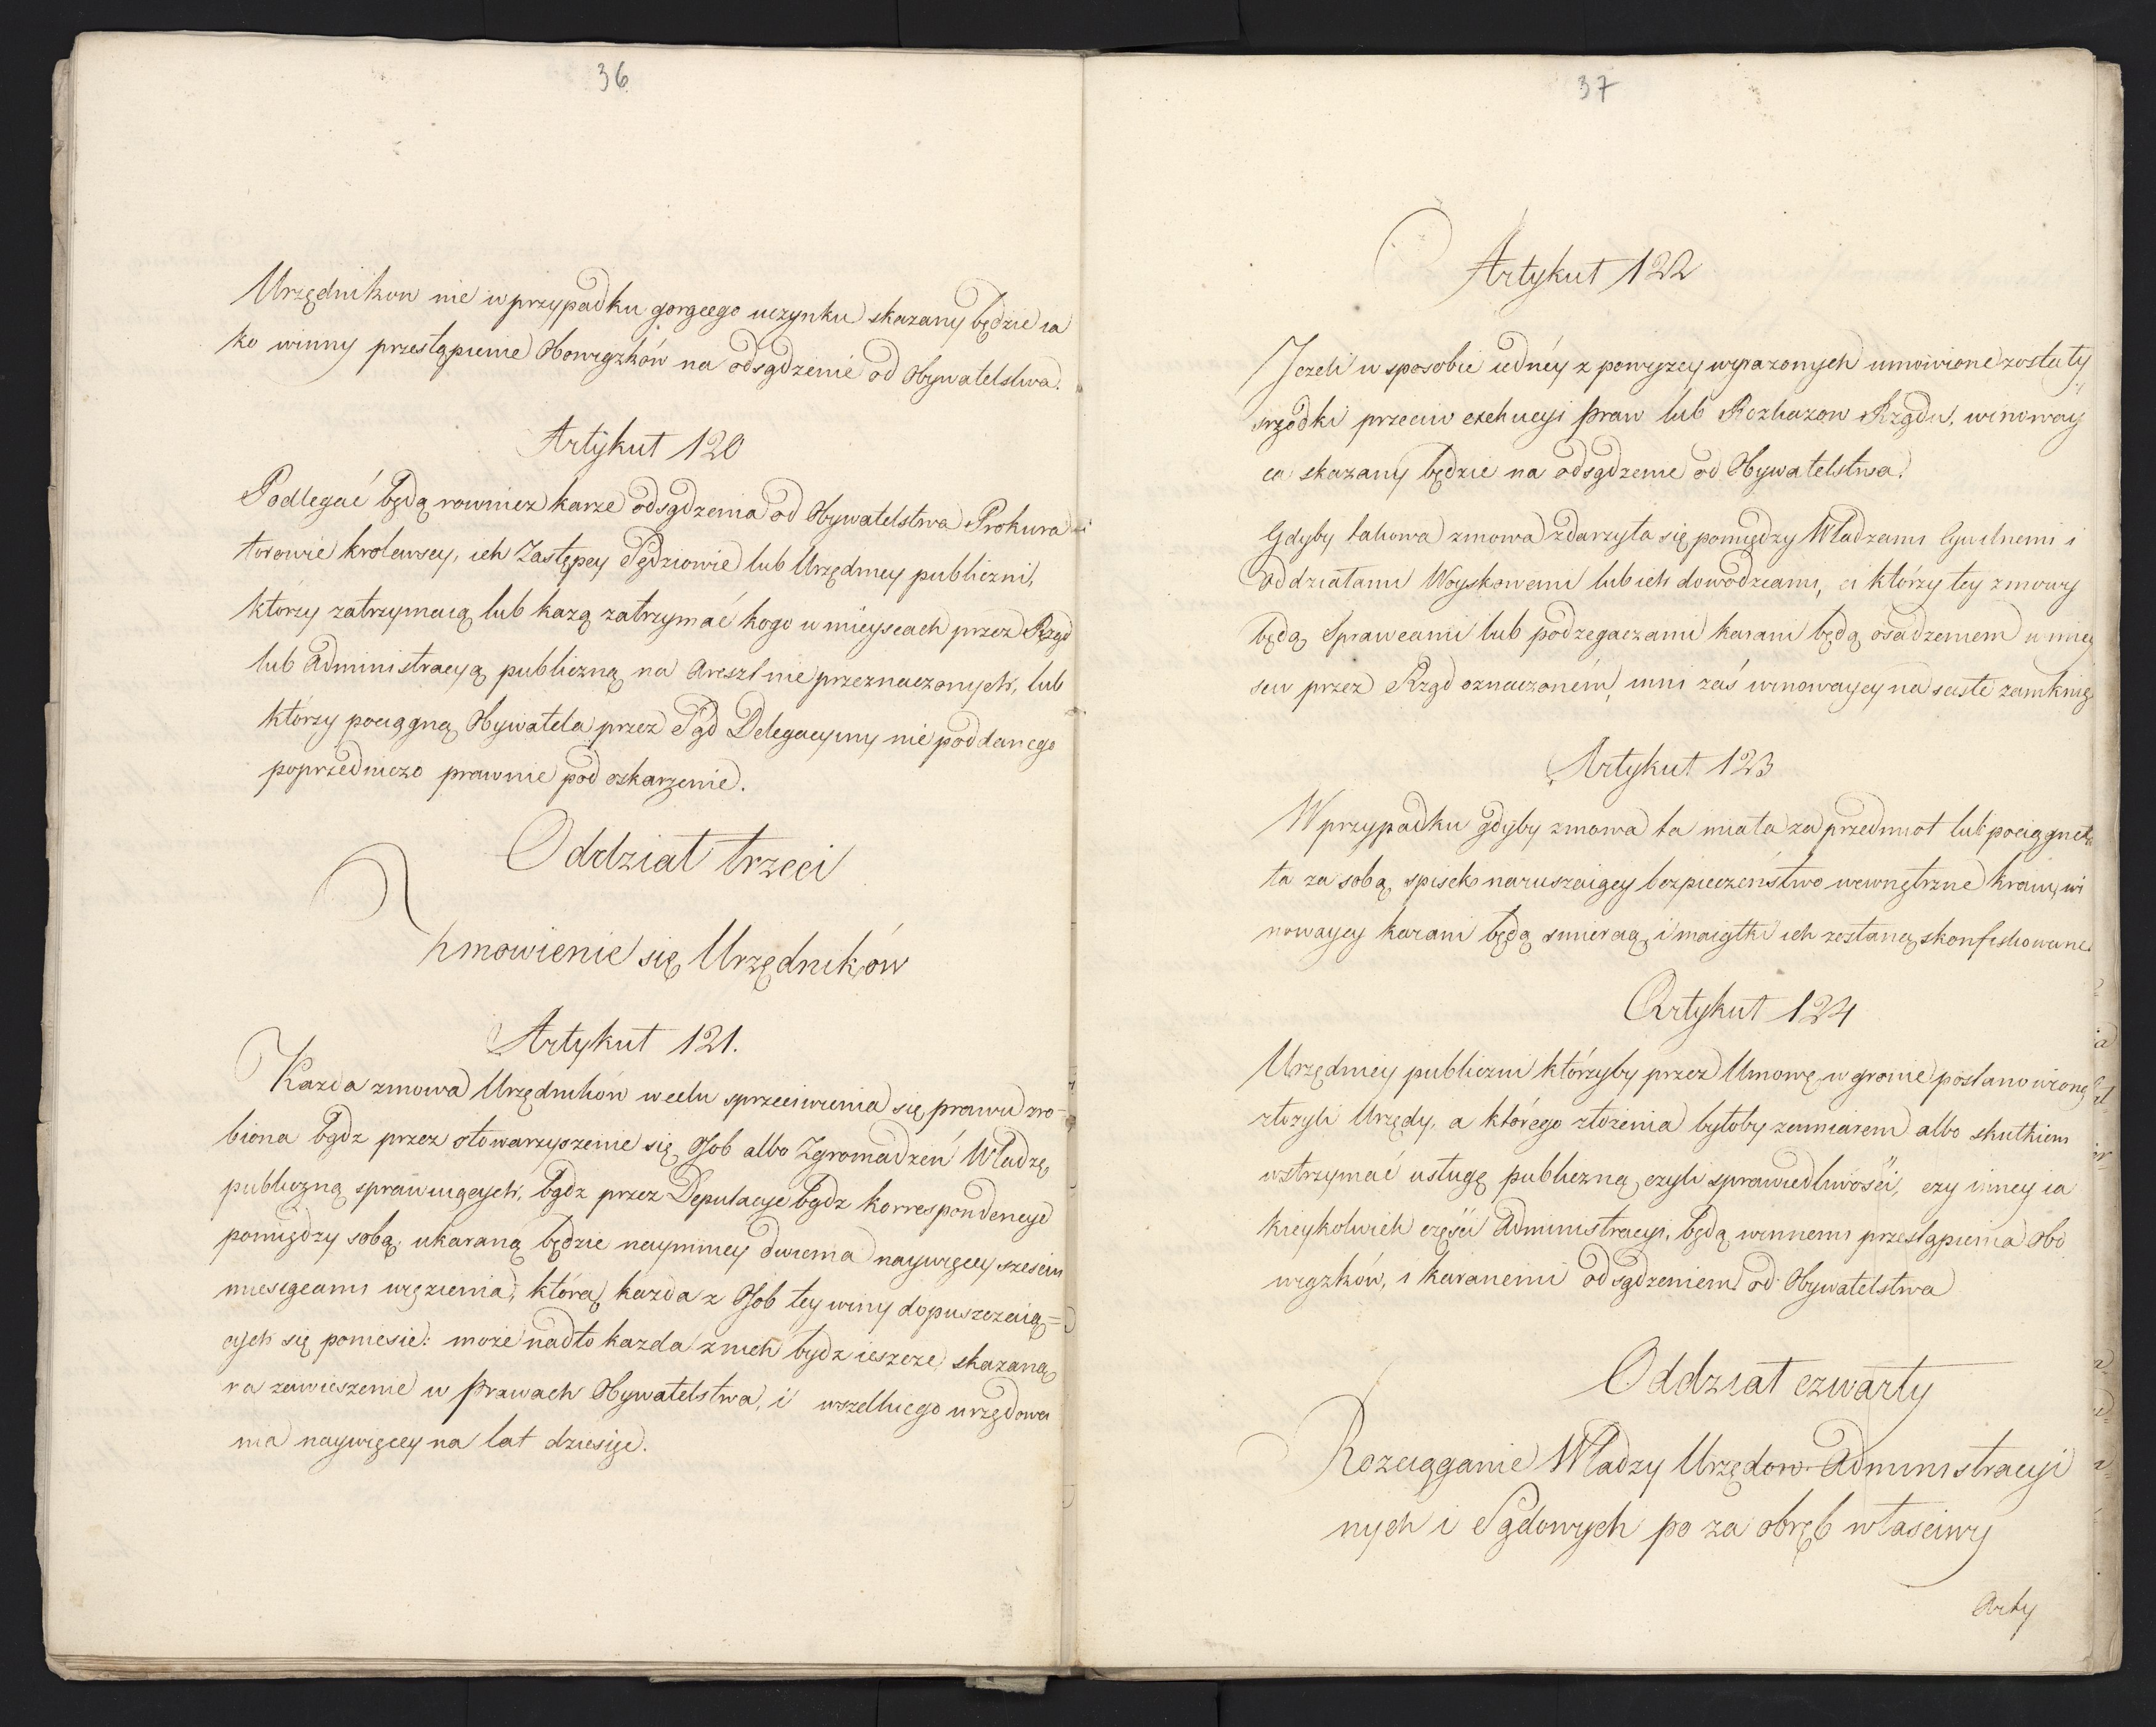 36
Urzędnikow nie w przypadku gorącego uczynku skazany będzie ia
ko winny przestąpienie Obowiązków na odsądzenie od Obywatelstwa.
Artykuł 120
Podlegać będą rownież karze odsądzenia od Obywatelstwa Prokura
torowie krolewscy, ich Zastępcy Sędziowie lub Urzędnicy publiczni,
którzy zatrzymaią lub każą zatrzymać kogo w mieyscach przez Rząd
lub Administracyą publiczną na Areszt nie przeznaczonych, lub
którzy pociągną Obywatela przez Sąd Delegacyiny nie poddanego
poprzedniczo prawnie pod oskarżenie.
Oddział trzeci
Zmowienie się Urzędników
Artykuł 121.
Każda zmowa Urzędników w celu sprzeciwienia się prawu zro-
biona bądz przez stowarzyszenie się Osob albo Zgromadzeń Władzę
publiczną sprawuiących, bądz przez Deputacye bądz korrespondencye
pomiędzy sobą, ukaraną będzie naymniey dwiema naywięcey sześciu
miesiącami więzienia, którą każda z Osob tey winy dopuszczaią=
cych się poniesie: może nadto każda z nich bydz ieszcze skazaną
na zawieszenie w Prawach Obywatelstwa, i wszelkiego urzędowa
nia naywięcey na lat dziesięć.
37
Artykuł 122
Jeżeli w sposobie iedney z powyżey wyrażonych umówione zostały
srzodki przeciw exekucyi Praw lub Rozkazow Rządu, winoway
ca skazany będzie na odsądzenie od Obywatelstwa.
Gdyby takowa zmowa zdarzyła się pomiędzy Władzami Cywilnemi i
Oddziałami Woyskowemi lub ich dowodzcami, ci którzy tey zmowy
będą Sprawcami lub podżegaczami karani będą osadzeniem w miey
scu przez Rząd oznaczoném, inni zaś winowaycy na scisłe zamknię
Artykuł 123
W przypadku gdyby zmowa ta miała za przedmiot lub pociągneła
ta za sobą, spisek naruszaiący bezpieczeństwo wewnętrzne kraiu, wi
nowaycy karani będą smiercią, i maiątki ich zostaną skonfiskowane
Artykuł 124
Urzędnicy publiczni którzyby przez Umowę w gronie postanowioną
złożyli Urzędy, a którego złożenia byłoby zamiarem albo skutkiem
wstrzymać usługę publiczną, czyli sprawiedliwości, czy inney ia
kieykolwiek części Administracyi, będą winnemi przestąpienia Obo
wiązków, i karanemi odsądzeniem od Obywatelstwa
Oddział czwarty
Rozciąganie Władzy Urzędow Administracyi
nych i Sądowych po za obręb właściwy
Arty